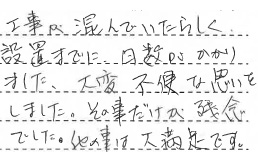 工事が混んでいたらしく
設置までに日数がかかり
ました、大変不便な思いを
しました。その事だけが残念
でした。他の事は大満足です。